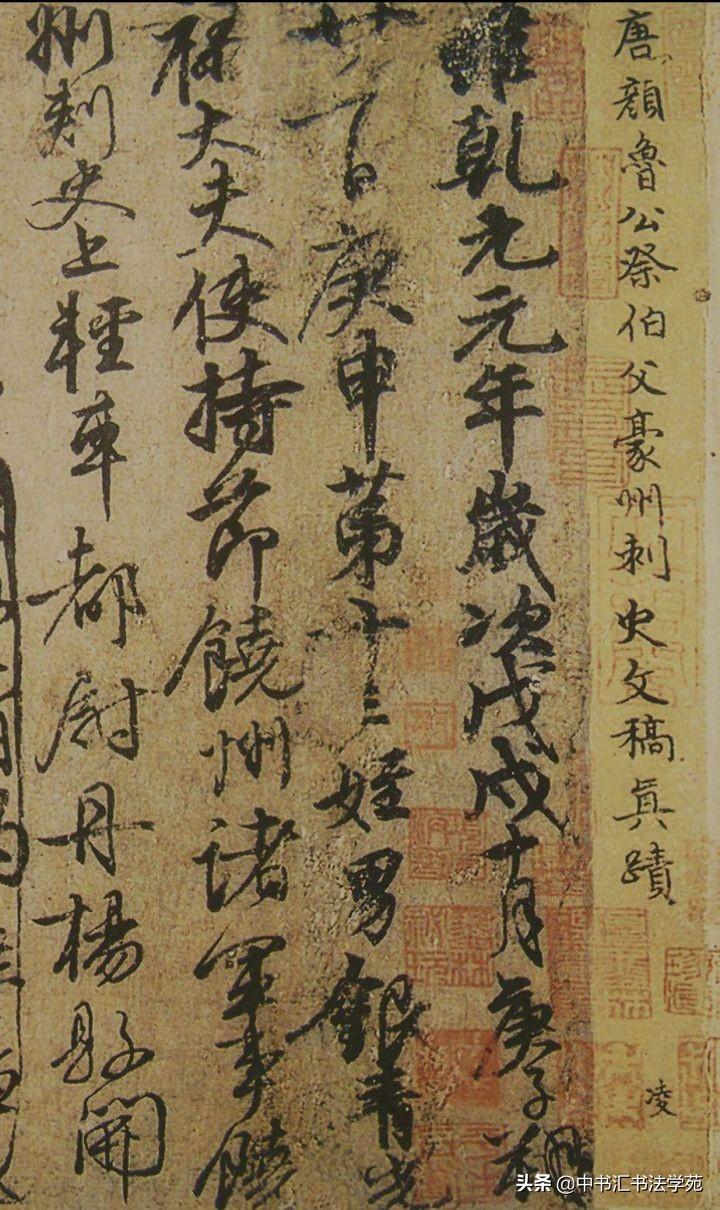 唐顔魯公祭伯父豪州刺史文稿真蹟
凌
維乾元元年歲次戊戌十月庚子朔
廿一日庚申第十三姪男銀青光
祿大夫使持節饒州諸軍事饒
州刺史上輕車都尉丹楊縣開
头条 @中书汇书法学苑